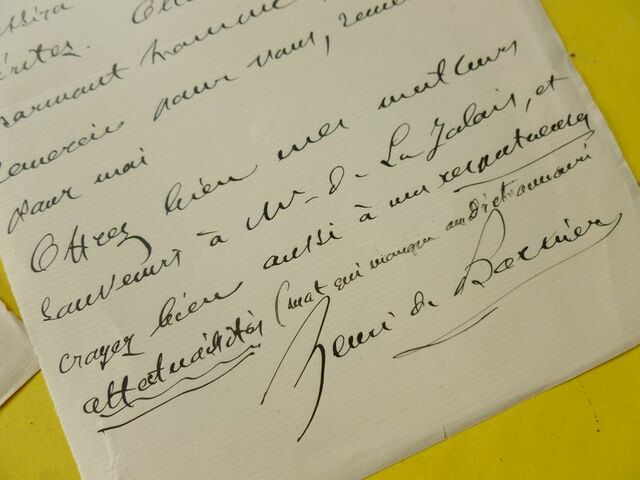 ssira
érites.
armant homme,
remercie pour vous,
pour moi
Offrez bien mes meilleurs
souvenirs à Mr de La Jalais, et
croyez bien aussi à mes respectueuses
affectuosités (mot qui manque au dictionnaire
Henri de Bornier